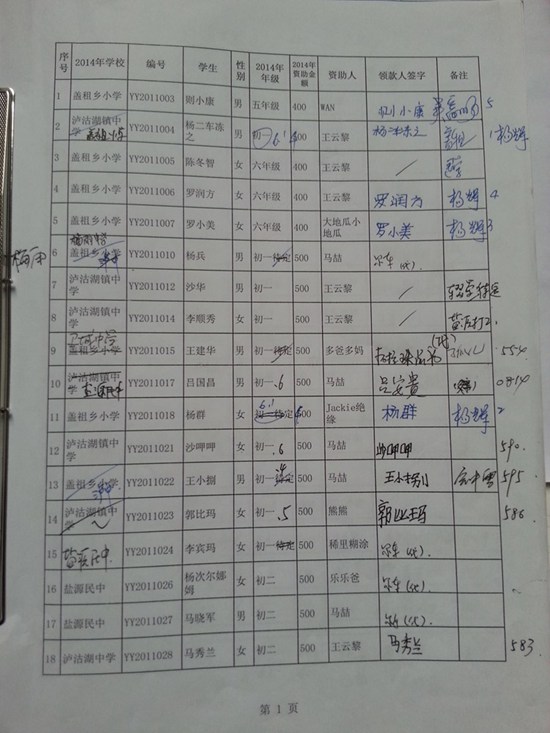 序号 2014年学校 编号 学生 性别 2014年年级 2014年资助金额 资助人 领款人签字 备注
1 盖祖乡小学 YY2011003 则小康 男 五年级 400 WAN 则小康 5
2 泸沽湖镇中学 盖祖小学 YY2011004 杨二车冻之 男 初一 6.1 400 王云黎 1 杨辉
3 盖祖乡小学 YY2011005 陈冬智 女 六年级 400 王云黎 /
4 盖祖乡小学 YY2011006 罗润方 女 六年级 400 王云黎 罗润方 杨辉 4
5 盖祖乡小学 YY2011007 罗小美 女 六年级 400 大地瓜小地瓜 罗小美 杨辉 3
6 盖祖乡小学 YY2011010 杨兵 男 初一待定 500 马喆
7 泸沽湖镇中学 YY2011012 沙华 男 初一 500 王云黎 /
8 泸沽湖镇中学 YY2011014 李顺秀 女 初一 500 王云黎 /
9 盖祖乡小学 YY2011015 王建华 男 初一待定 500 多爸多妈 554
10 泸沽湖镇中学 YY2011017 吕国昌 男 初一 .6 500 马喆 0414
11 盖祖乡小学 YY2011018 杨群 女 初一待定 6.1 500 Jackie绝缘 杨群 杨辉 2
12 泸沽湖镇中学 YY2011021 沙呷呷 女 初一 .6 500 马喆 沙呷呷 590
13 盖祖乡小学 YY2011022 王小捌 男 初一待定 500 马喆 王小捌 595
14 泸沽湖镇中学 YY2011023 郭比玛 女 初一 .5 500 熊熊 郭比玛 586
15 盐源民中 YY2011024 李宾玛 女 初一待定 500 稀里糊涂
16 盐源民中 YY2011026 杨次尔娜姆 女 初二 500 乐乐爸
17 盐源民中 YY2011027 马晓军 男 初二 500 马喆
18 泸沽湖中学 YY2011028 马秀兰 女 初二 500 王云黎 马秀兰 583
第 1 页